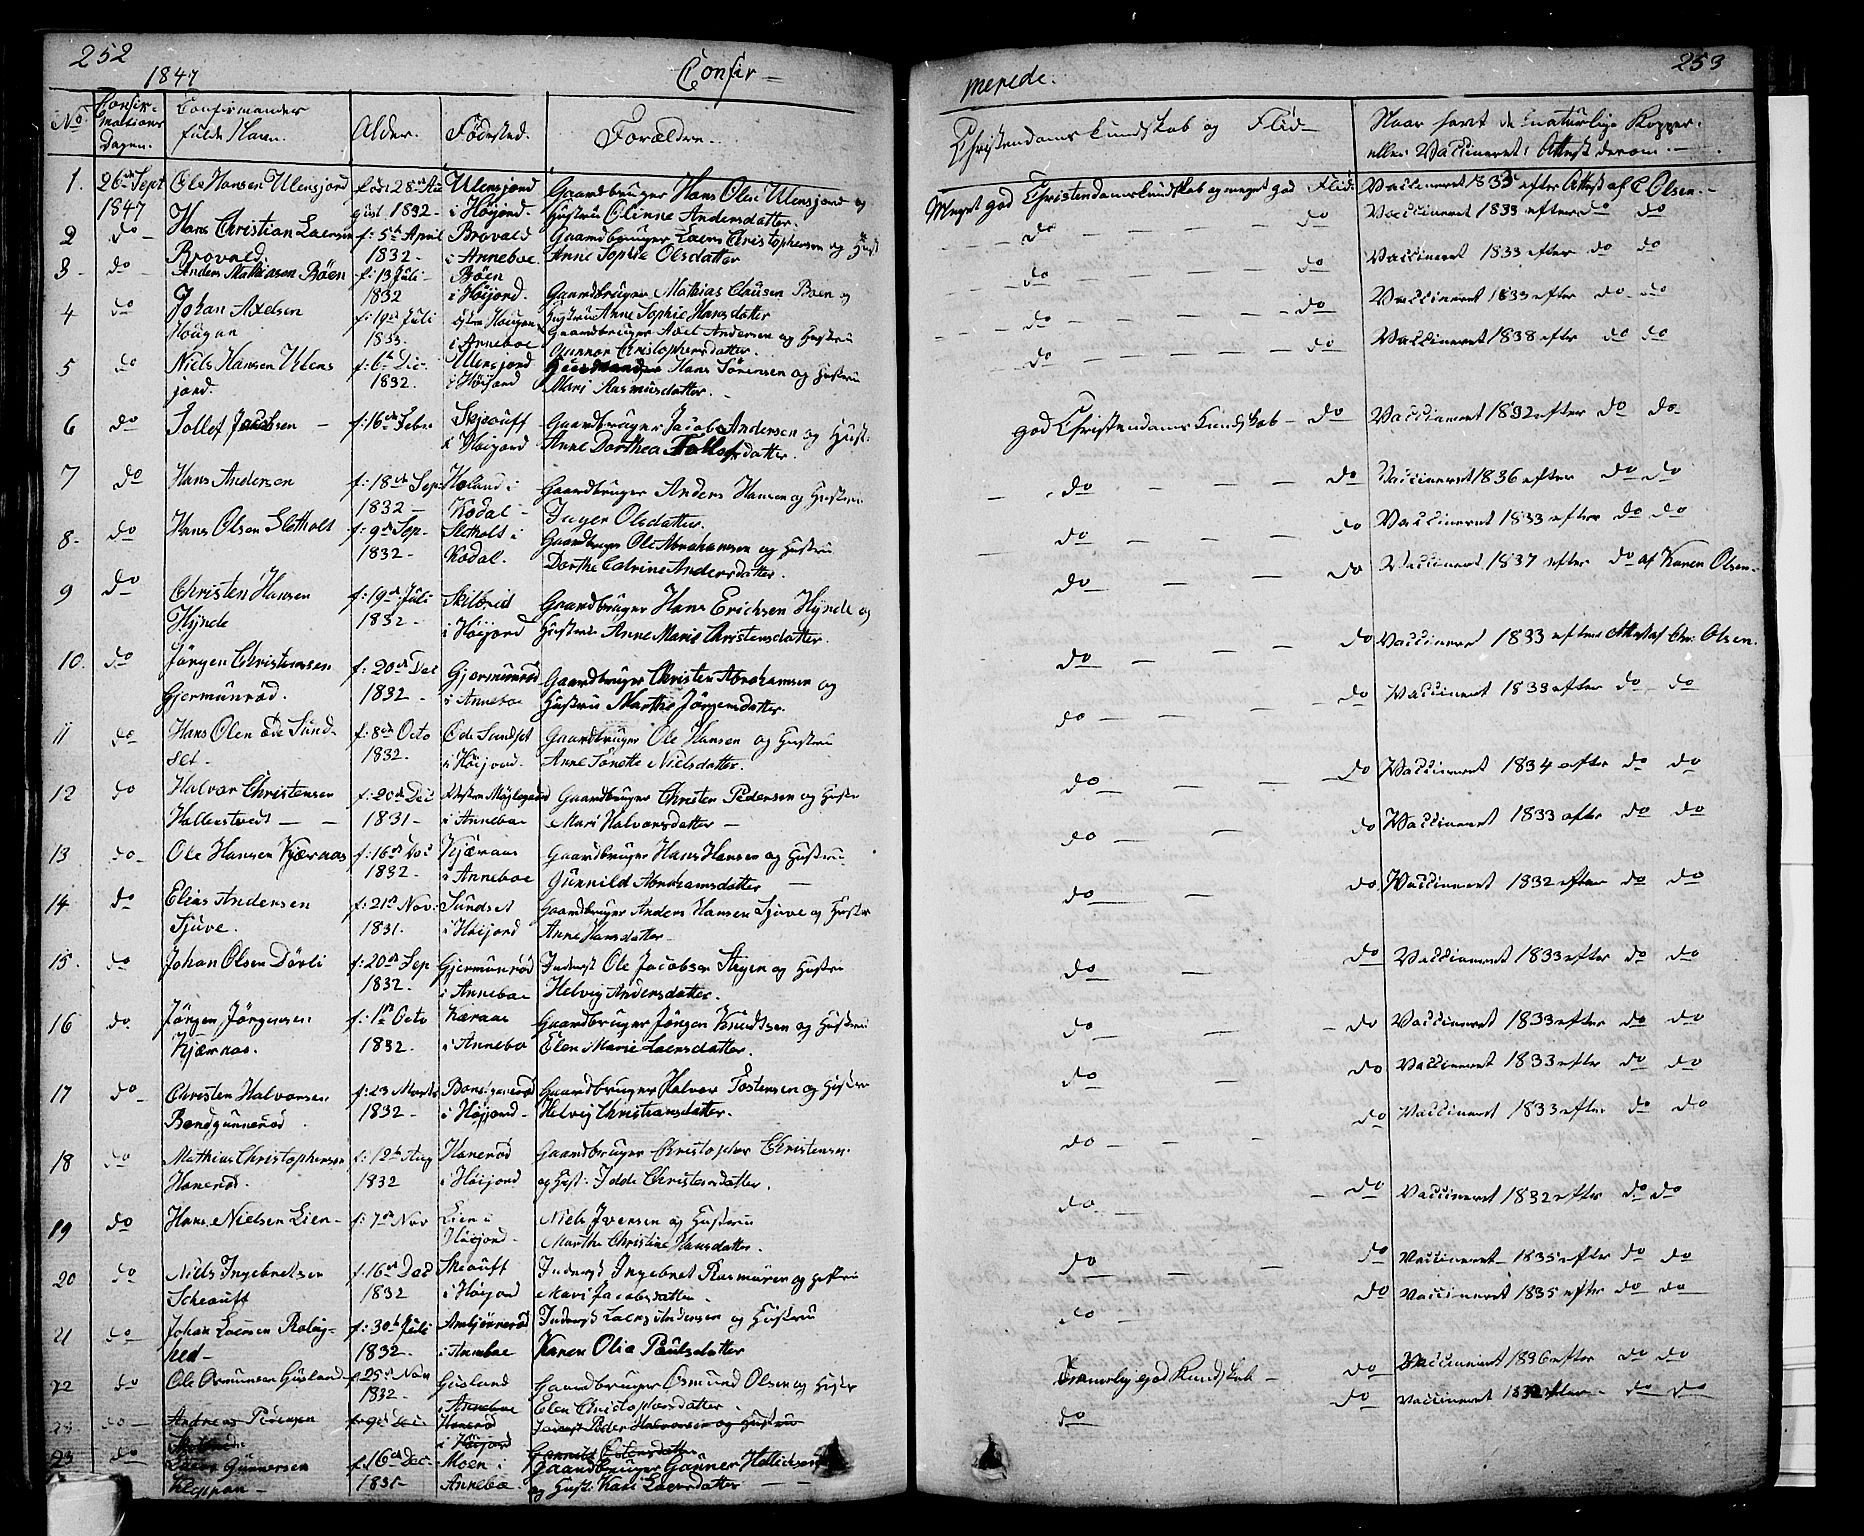 252
1847
Confir —
No. Confirmations Dagen. Confirmander fulde Navn. Alder. Fødested. Forældre.
1. 26de Sept 1847 Ole Hansen Ulensjord født 28de August 1832 — Ulensjord i Höijord. Gaardbruger Hans Olsen Ulensjord og
Hustru Olinne Andersdatter.
2 do — Hans Christian Laersen Brovald. f: 5te April 1832 — Brovald i Anneboe. Gaardbruger Laers Christophersen og Hust
Anne Sophie Olsdatter
3 — do — Anders Mathiasen Böen f: 13 Juli 1832 Böen i Höijord. Gaardbruger Mathias Clausen Boen og
Hustru Anne Sophie Hansdatter
4 do Johan Axelsen Hougan f: 19de Juli 1833. Hougen i Anneboe Gaardbruger Axel Andersen og Hustru
Gunnor Christophersdatter.
5 do Niels Hansen Ulensjord. f: 6te Dec. 1832. Ulensjord i Höijord Hans Sörensen og Hustru
Mari Rasmusdatter. —
6 do Tollef Jacobsen — f: 16de Febr Skjeauff i Höijord Gaardbruger Jacob Andersen og Hust:
Anne Dorthea Tollefsdatter.
7 do Hans Andersen f: 18de Sep 1832 — Holand i Kodal — Gaardbruger Anders Hansen og Hustru
Inger Olsdatter.
8. do Hans Olsen Sletholt f: 9de Sep. 1832 — Sletholt i Kodal. Gaardbruger Ole Abrahamsen og Hustru
Dorthe Catrine Andersdatter.
9 do Christen Hansen Hynde f: 19de Juli 1832 — Skilbrid i Höijord Gaardbruger Hans Erichsen Hynde og
Hustru Anne Marie Christensdatter.
10. do Jörgen Christensen Gjermunröd. f: 20de Dec 1832 — Gjermunröd i Anneboe Gaardbruger Christen Abrahamsen og
Hustru Marthe Jörgensdatter.
11 do Hans Olen öde Sundset — f: 8de Octo 1832. Öde Sundset i Höijord. Gaardbruger Ole Hansen og Hustru
Anne Tonette Nielsdatter.
12 do Halvor Christensen Hallenstvedt — f: 20de Dec 1831 — i Anneboe Gaardbruger Christen Pedersen og Hustr
Mari Halvorsdatter —
13 do — Ole Hansen Kjærnas f: 16de Dec 1832. Kjæraas i Anneboe Gaardbruger Hans Hansen og Hustru
Gunnild Abrahamsdatter —
14 do Elias Andersen Sjuve. f: 21de Nov: 1831. Sundset i Höijord Gaardbruger Anders Hansen Sjuve og Hustr
Anne Hansdatter —
15. do Johan Olsen Dövli f: 20de Sep 1832. Gjermunröd i Anneboe Inderst Ole Jacobsen og Hustru
Helvig Andersdatter.
16 do Jörgen Jörgensen Kjærnas. f: 1ste Octo 1832. Kæraas i Anneboe Gaardbruger Jörgen Knudtsen og Hustru
Elen Marie Laersdatter.
17 do — Christen Halvorsen Bondgunneröd f: 23 Marts 1832 — i Höijord — Gaardbruger Halvor Tostensen og Hustr
Helvig Christiansdatter.
18 do Mathias Christophersen Haneröd. f: 12te Aug 1832 Haneröd i Höijord Gaardbruger Christopher Christensen
og Hust: Idde Christensdatter.
19 do Hans Nielsen Lien — f: 7de Nov Lien i Höijord — Niels Iversen og Hustru
Marthe Christine Hansdatter.
20 do Niels Ingebretsen Scheauff f: 16de Dec 1832 Skeauff i Höijord Inderst Ingebret Rasmusen og Hustru
Mari Jacobsdatter.
21 do — Johan Laersen f: 30te Juli 1832. i Anneboe Inderst Laers Andersen og Hustru
Karen Olia Paulsdatter
22 do Ole Osmunsen Gusland — f. 25de Nov 1832. Gusland i Anneboe Gaardbruger Osmund Olsen og Hustr
Elen Christophersdatter.
23 do — Andreas Pedersen f: 9de Dec. Haneröd i Höijord Inderst Peder Halvorsen og Hustru
Gunnild Ostensdatter
23 do Laers Gunnersen Kleppan — f. 16de Dec. 1831 — Moen i Anneboe Gaardbruger Gunner
og Hust: Kari Laersdatter —
253
merede.
Christendoms kundskab og Flid — Naar havt de naturlige Kopper eller Vaccineret: Attest derom. —
Meget god Christendomskundskab og meget god Flid. Vaccineret 1833 efter Attest af C Olsen. —
do do Vaccineret 1833 efter do do
do do Vaccineret 1833 efter do do
do do Vaccineret 1833 efter do do
do do Vaccineret 1838 efter do do
god Christendoms Kundskab — do Vaccineret 1832 efter do do
do do Vaccineret 1836 efter do do
do do Vaccineret 1833 efter do do
do do Vaccineret 1837 efter do af Karen Olsen —
do do Vaccineret 1833 efter Attest af Chr: Olsen
do do Vaccineret 1833 efter do do
do do Vaccineret 1834 efter do do
do do Vaccineret 1833 efter do do
do do Vaccineret 1832 efter do do
do do Vaccineret 1833 efter do do
do do Vaccineret 1833 efter do do
do do Vaccineret 1833 efter do do
do do Vaccineret 1833 efter do do
do do Vaccineret 1832 efter do do
do do Vaccineret 1835 efter do do
do do Vaccineret 1835 efter do do —
Kundskab — do Vaccineret 1836 efter do do
do do Vaccineret 1832 efter — do do